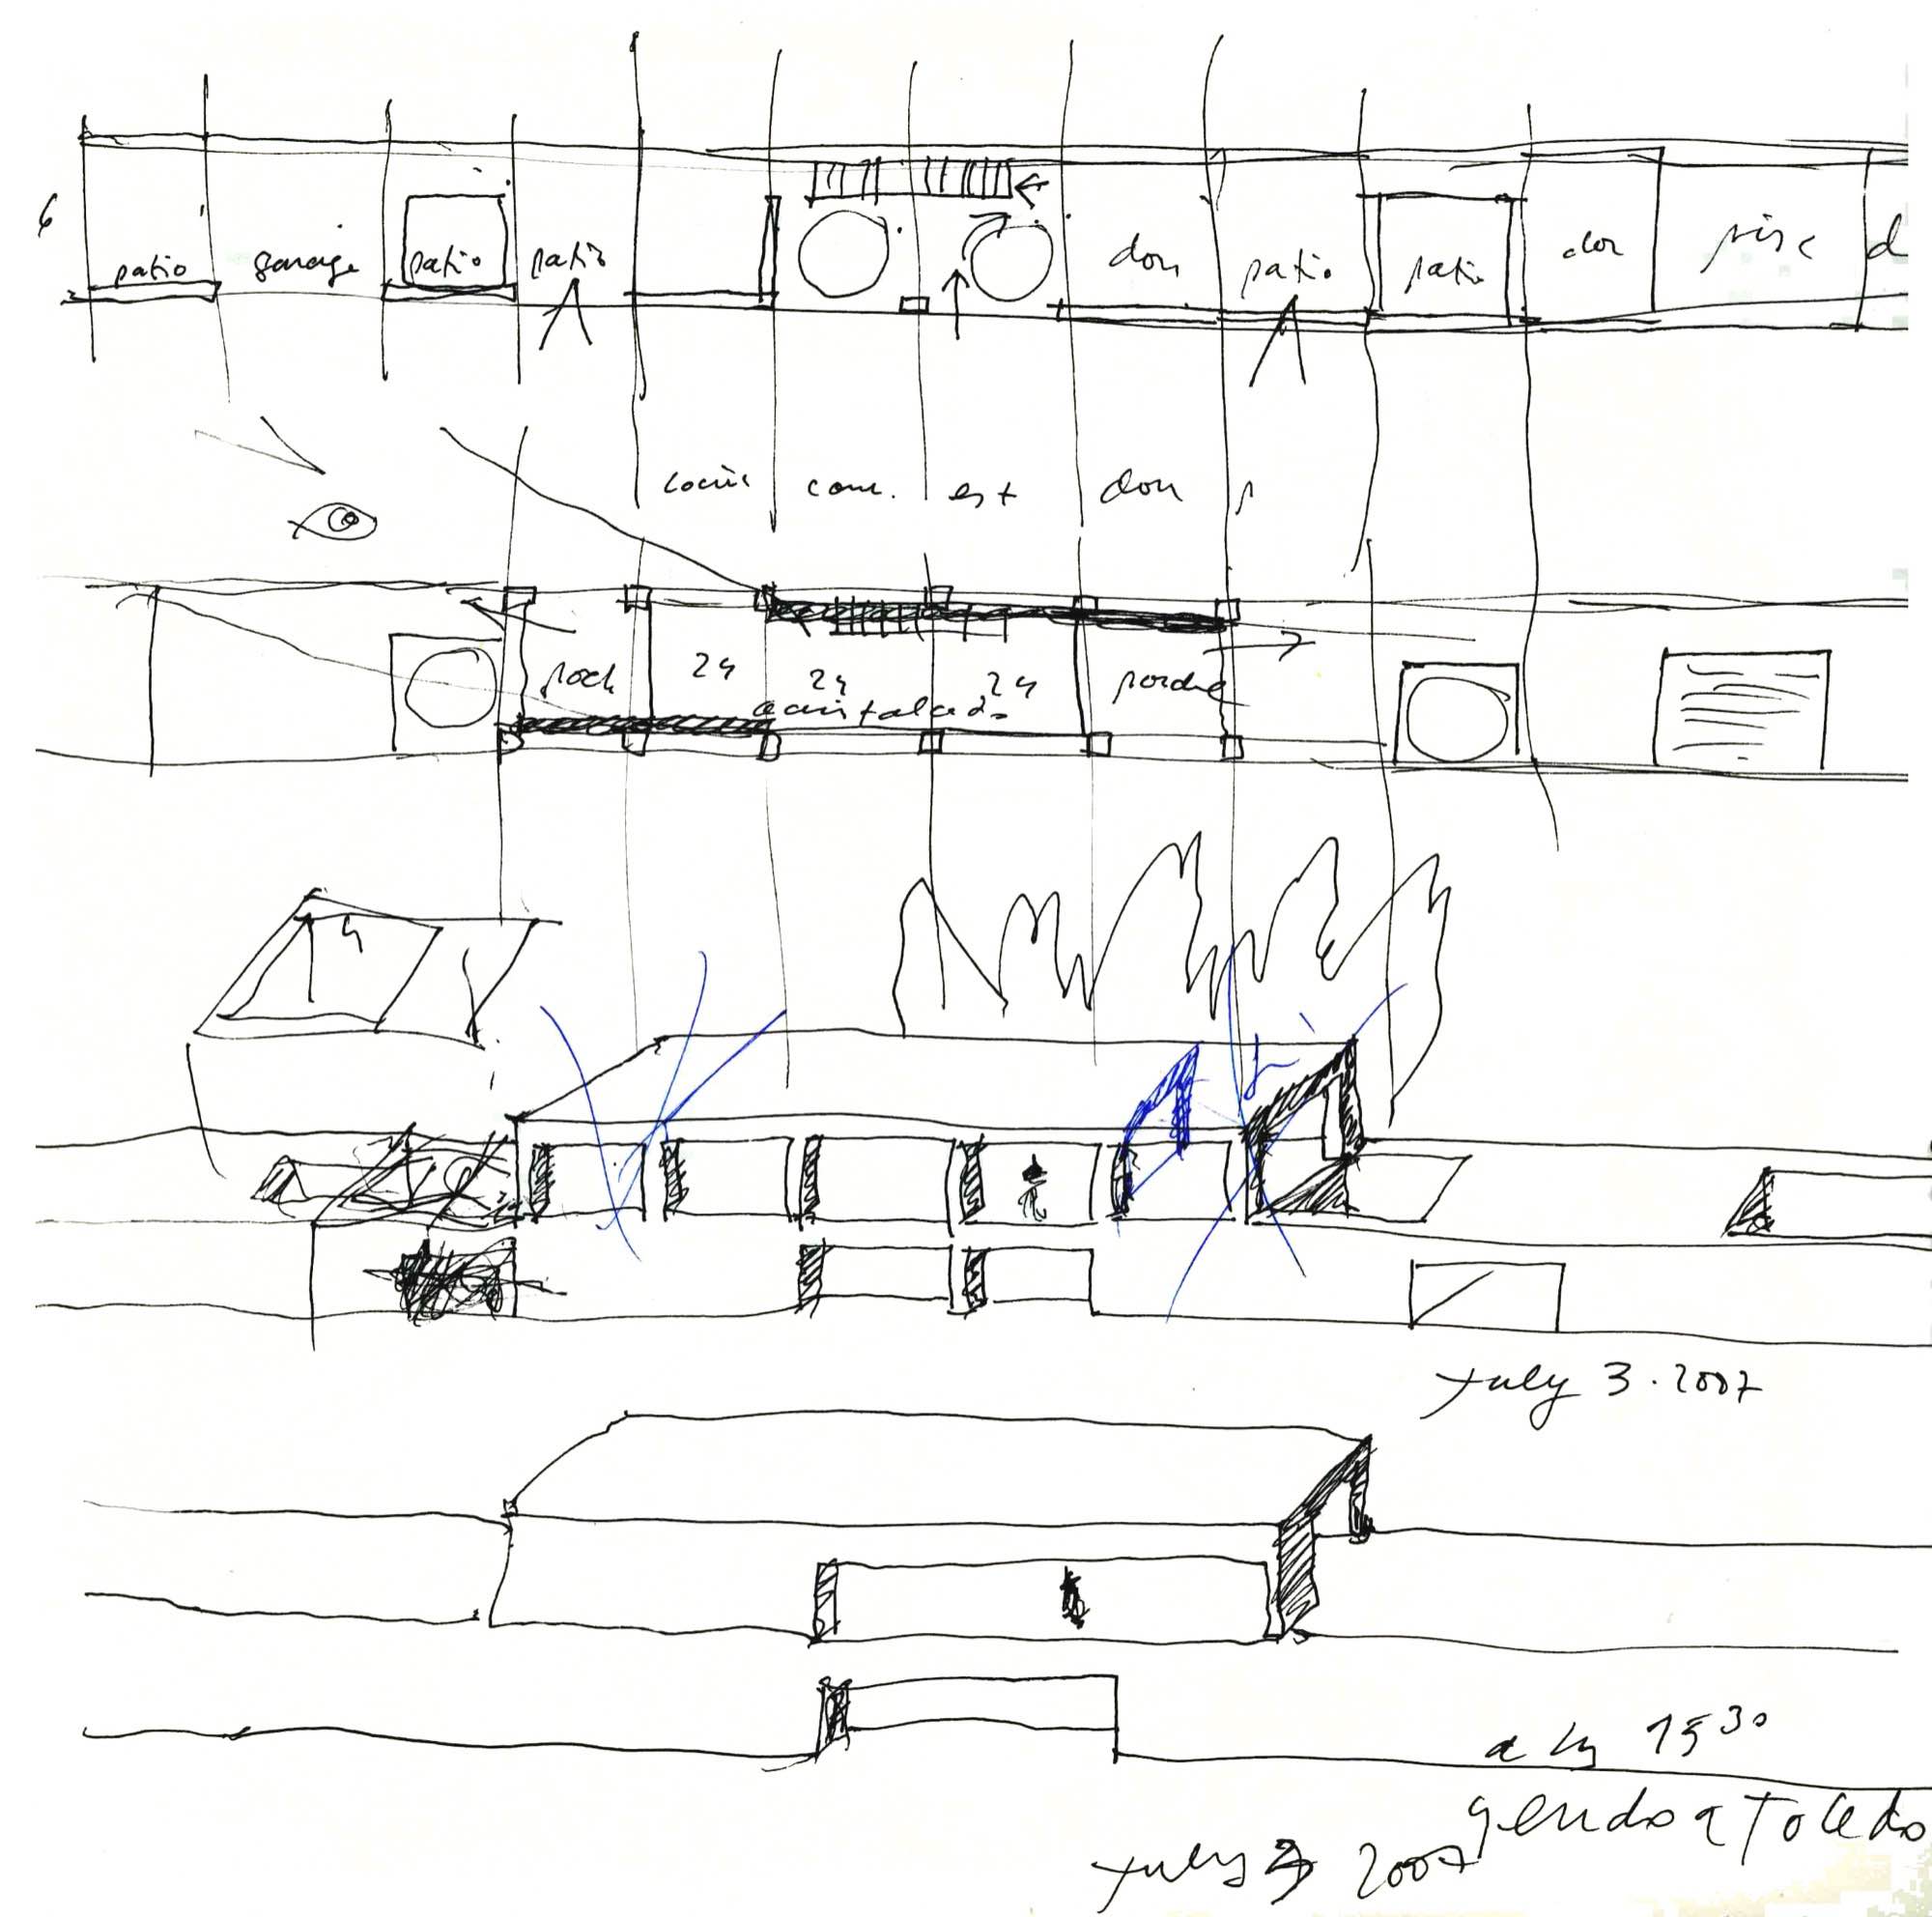 6
patio garage patio patio dor patio patio dor pisc d
cocin com. est dor p
24 24 24
acristalado
4
july 3.2007
a las 15 30
yendo a Toledo
july 3 2007